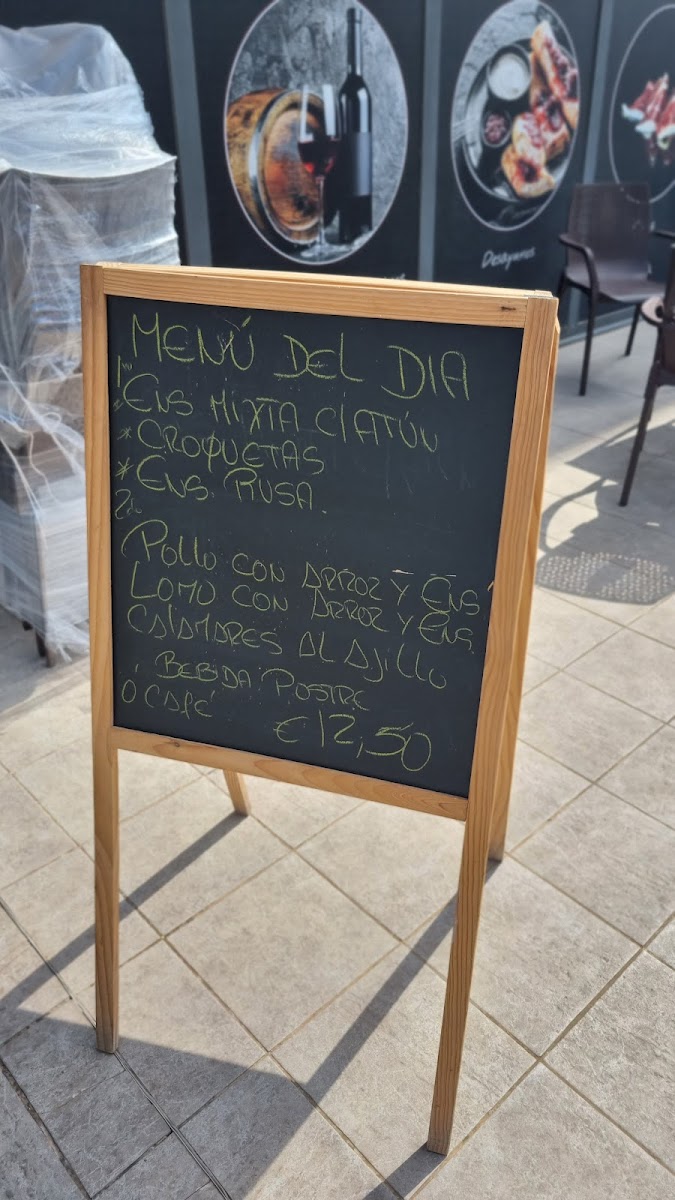 Desayunos
MENÚ DEL DIA
1º
* ENS MIXTA C/ATÚN
* CROQUETAS
* ENS. RUSA.
2º
POLLO CON ARROZ Y ENS
LOMO CON ARROZ Y ENS.
CALAMARES AL AJILLO
BEBIDA POSTRE
O CAFÉ
€12,50